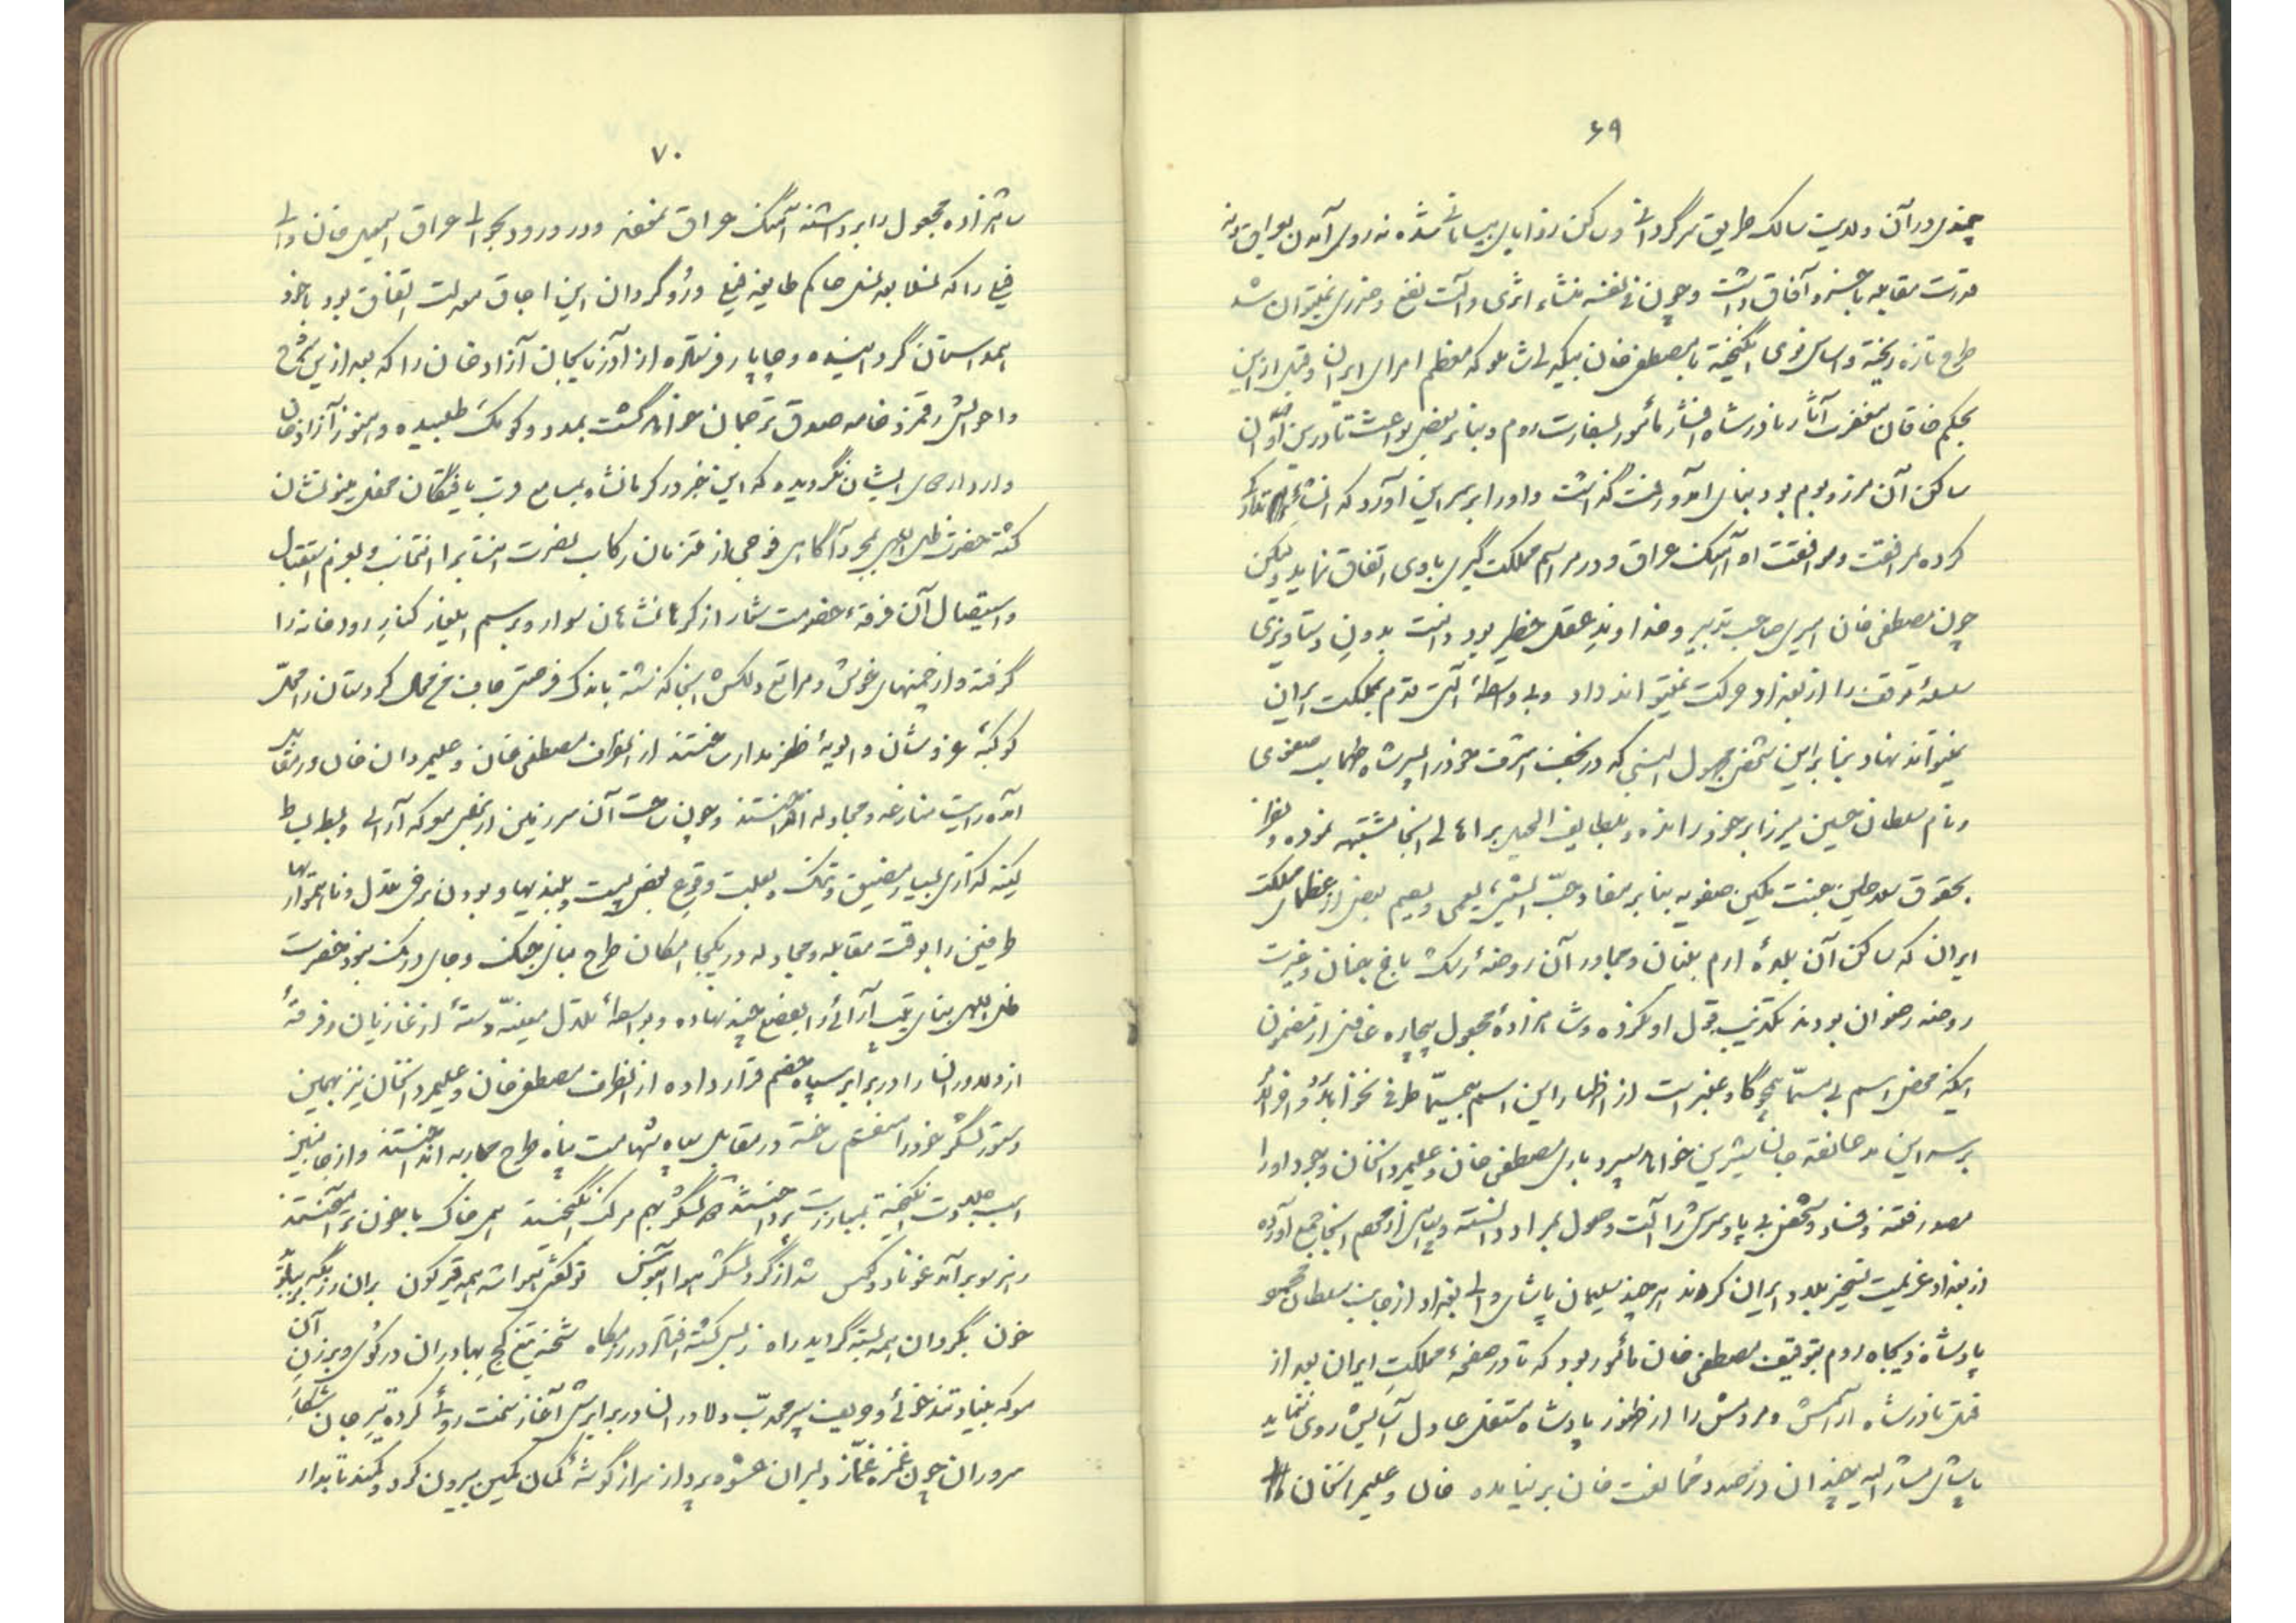 ۶۹
چندی در آن ولایت سالک طریق سرگردانی و ساکن زوایای بی سامانی شده نه روی آمدن بعراق و نه
قدرت مقابله با خسرو آفاق داشت و چون فی نفسه منشاء اثری و آلت نفع و ضرری نمیتوان شد
طرح تازه ریخته و اساس نوی انگیخته با مصطفی خان بیگدلی شاملو که معظم امرای ایران و قبل از این
بحکم خاقان مغفرت آثار نادرشاه افشار مأمور بسفارت روم و بنا بر بعضی بواعث تا در این اوان
ساکن آن مرز و بوم بود بنای آمد و رفت گذاشت و او را بر سر این آورد که
کرده مرافقت و موافقت او آهنگ عراق و در مراسم مملکت گیری با وی اتفاق نماید ولیکن
چون مصطفی خان امیری صاحب تدبیر و خداوند عقل خطیر بود دانست بدون دستاویزی
توقف را از بغداد حرکت نمیتواند داد و بی واسطهٔ آلتی قدم بمملکت ایران
نمیتواند نهاد بنا بر این شخص مجهول النسبی که در نجف اشرف خود را پسر شاه طهماسب صفوی
و نام سلطان حسین میرزا بر خود رانده و بلطایف الحیل بر اهالی آنجا مشتبه نموده و نظر
بحقوق سلاطین جنت مکین صفویه بنا بر مفاد حب الشیء یعمی و یصم بعضی از عظمای مملکت
ایران که ساکن آن بلدهٔ ارم بنیان و مجاور آن روضهٔ رشک باغ جنان و غیرت
روضه رضوان بودند تکذیب قول او نکرده و شاهزادهٔ مجعول بیچاره غافل از مضمون
اینکه محض اسم بی مسما هیچ گاه معتبر است از اظهار این اسم بیمسما طرفی نخواهد
بر سر این مدعا نقد جان شیرین خواهد سپرد باری مصطفی خان و علیمردانخان وجود او را
مصدر فتنه و فساد و شخص بی پا و سری را آلت وصول بمراد دانسته و سپاهی از دحام آنجا جمع آورده
از بغداد عزیمت تسخیر بلاد ایران کردند هر چند سلیمان پاشای والی بغداد از جانب سلطان محمود
پادشاه ذیجاه روم بتوقیف مصطفی خان مأمور بود که تا در صفحهٔ مملکت ایران بعد از
قتل نادرشاه آرامش و مردمش را از ظهور پادشاه مستقل عادل آسایش روی ننماید
پاشای مشار الیه چندان در صدد ممانعت خان بر نیامده خان و علیمردانخان
۷۰
شاهزاده مجعول را برداشته آهنگ عراق نمودند و در ورود بحوالی عراق اسمعیل خان والی
فیلی را که نسلا بعد نسل حاکم طایفه فیلی و روگردان این اجاق سعادت اتفاق بود با خود
همداستان گردانیده و چاپار فرستاده از آذربایجان آزادخان را که بعد از این شرح
و احوالش رقمزد خامه صدق ترجمان خواهد گشت بمدد و کومک طلبیده و هنوز آزادخان
وارد اردوی ایشان نگردیده که این خبر در کرمانشاه بمسامع قرب یافتگان محفل مینو نشان
گشته حضرت ظل اللهی بمجرد آگاهی فوجی از ملتزمان رکاب نصرت انتساب را انتخاب و بعزم استقبال
و استیصال آن فرقهٔ خصومت شعار از کرمانشاهان سوار و برسم ایلغار کنار رودخانه را
گرفته و از چمنهای خوش و مراتع دلکش آنجا گذشته باندک فرصتی
کوکبهٔ عز و شان و الویهٔ ظفر مدار ساختند از آنطرف مصطفی خان و علیمردان خان در مقابل
آمده رایت منازعه و مجادله افراختند و چون ساحت آن سرزمین از بعضی معرکه آرائی و بسط بساط
کینه گذاری بسیار مضیق و تنگ و بعلت وقوع بعضی پست و بلندیها و بودن برخی تلال و ناهمواریها
طرفین را بوقت مقابله و مجادله در یکجا امکان طرح بنای جنگ و جای درنگ نبود حضرت
ظل اللهی بنای تیپ آرائی را بوضعی چند نهاده و بواسطهٔ تلال معینه دستهٔ از غازیان و فرقهٔ
از دلاوران را در برابر سپاه خصم قرار داده از آنطرف مصطفی خان و علیمردانخان نیز بهمین
دستور لشکر خود را منقسم ساخته در مقابل سپاه شهامت پناه طرح محاربه انداختند و از جانبین
اسب جلادت انگیخته بمبارزت پرداختند لشکر بهم مرکب انگیختند همی خاک با خون بر آمیختند
ز هر سو بر آمد غو نای و کوس شد از گرد لشکر هوا آبنوس تو گفتی هوا شد همه قیرگون
خون بگردان همه بسته گردید راه ز بس کشته افتاد در رزمگاه شحنهٔ تیغ کج بهادران در کوی و برزن آن
معرکه بنیاد تندخوئی و حریف پیر مجرب دلاوران در برابرش آغاز سخت روئی کرده تیر جان شکار
سروران چون غمزه غماز دلبران عشوه پرداز سر از گوشهٔ کمان کمین بیرون کرد و کمند تابدار